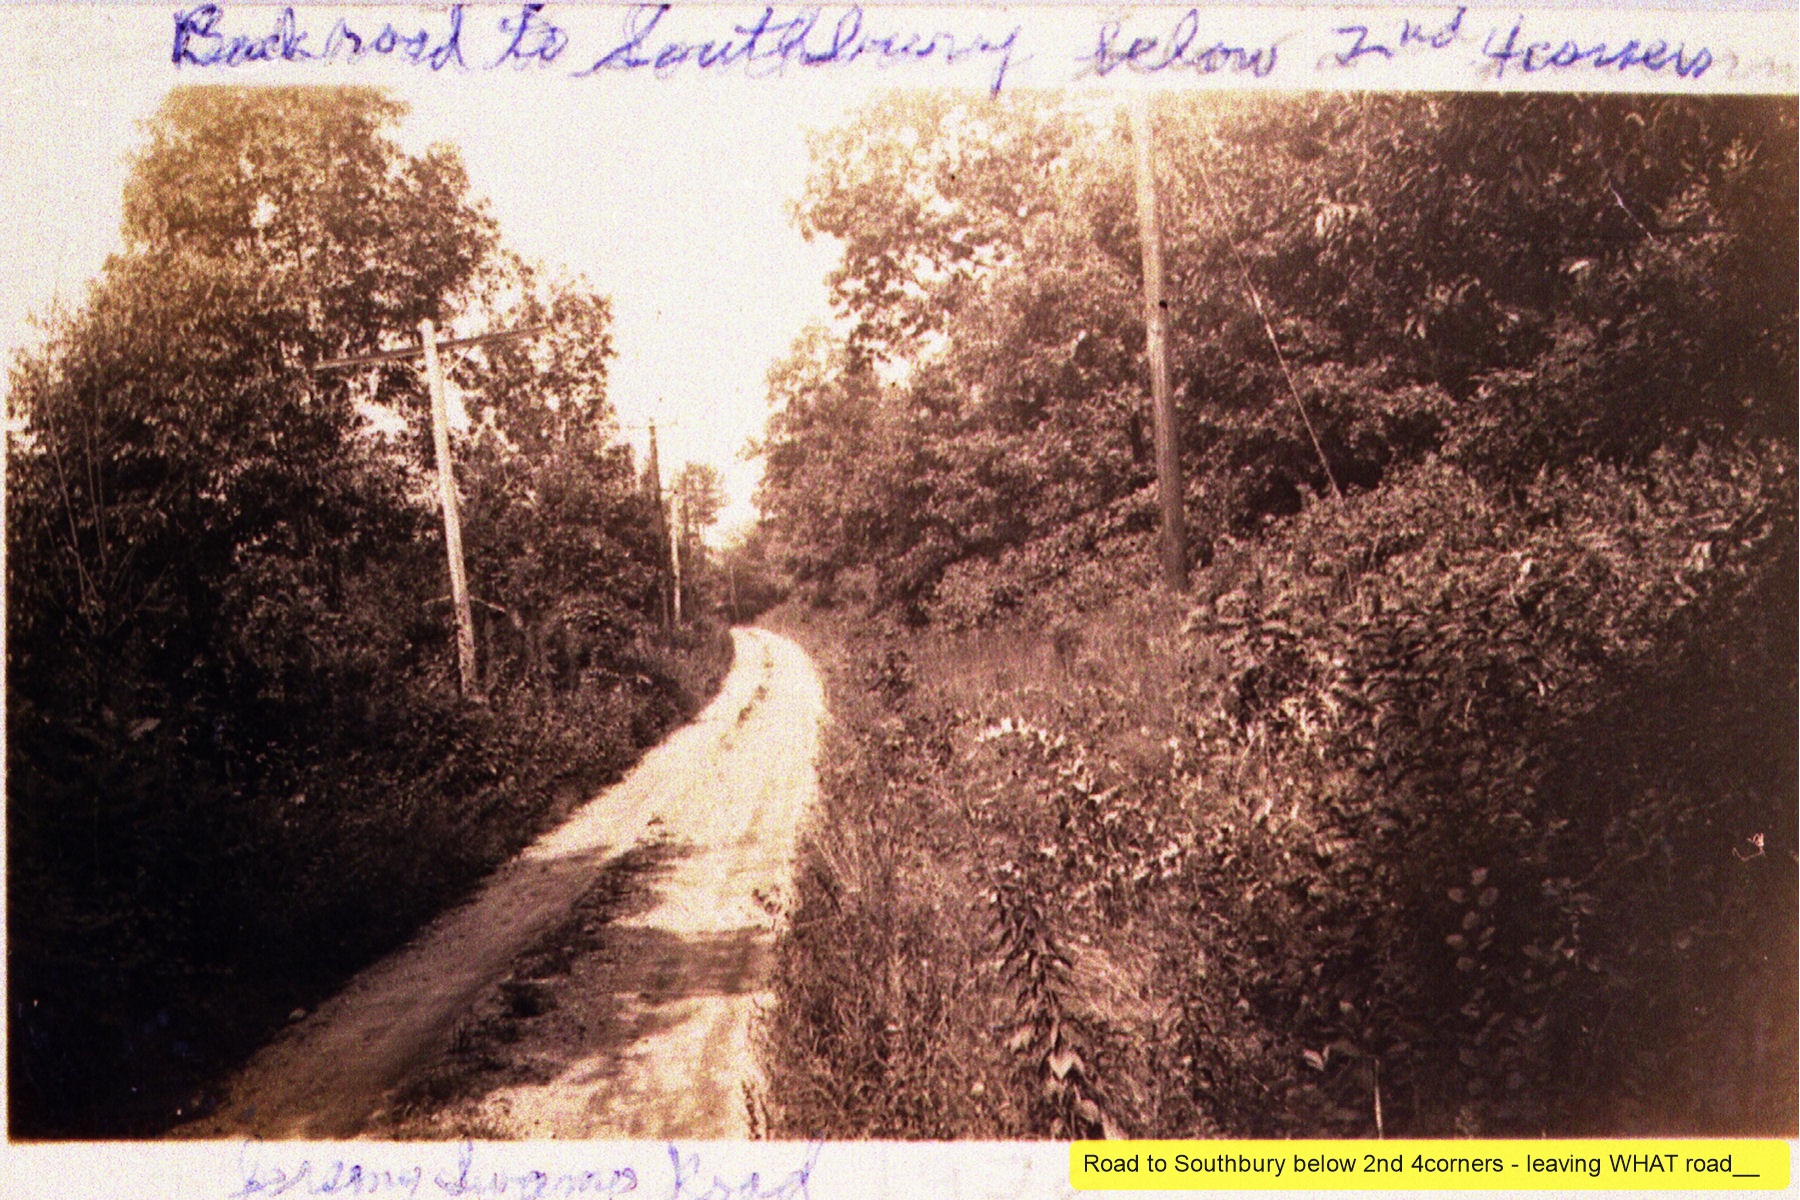 Back road to Southbury below 2nd 4corners
Jeremy Swamp Road
Road to Southbury below 2nd 4corners - leaving WHAT road__